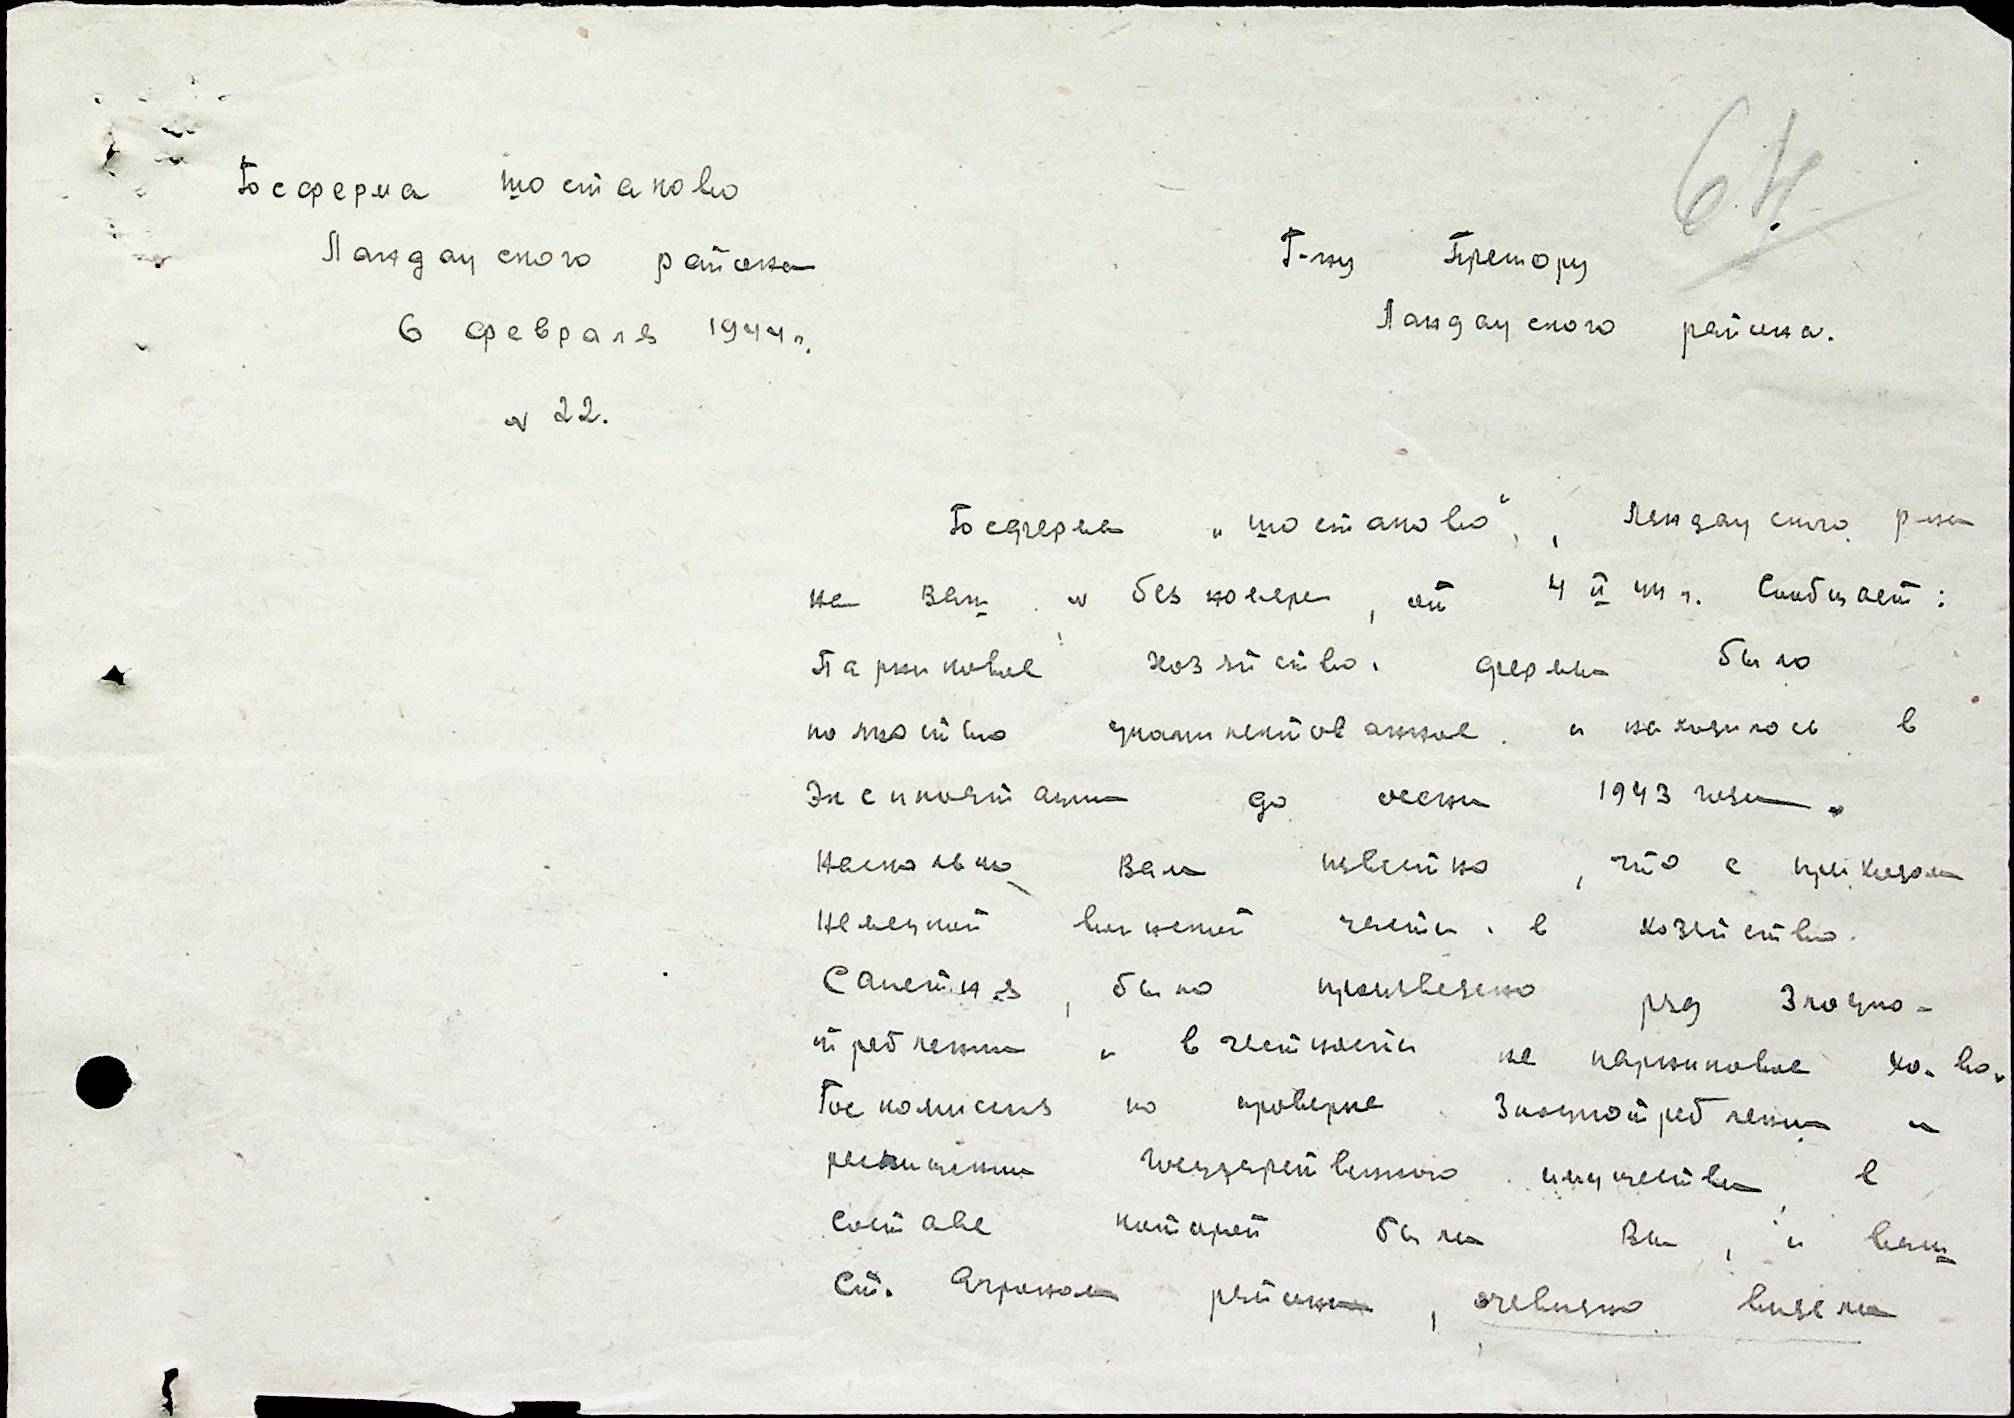 64
Госферма Шостаково
Ландауского района
6 февраля 1944 г.
N 22.
Г-ну Претору
Ландауского района.
Госферма „Шостаково“, Ландауского р-на
на Ваш N без номера, от 4 II 44 г. Сообщает:
Парниковое хозяйство. ферма было
полностью укомплектованное и находилось в
Эксплоатации до осени 1943 года.
Насколько Вам известно, что с приходом
Немецкой воинской части. в хозяйство.
было произведено ряд Злоупо-
треблении и в частности на парниковое хо-во.
Госкомиссия по проверке Злоупотреблении и
расхищении Государственного имущества в
составе которой были Вы, и ваш
Ст. Агроном района, очевидно видели